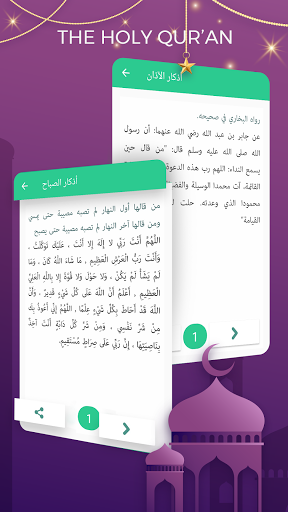 THE HOLY QUR'AN
أذكار الآذان
رواه البخاري في صحيحه.
عن جابر بن عبد الله رضي الله عنهما: أن رسول
الله صلى الله عليه وسلم قال: "من قال حين
يسمع النداء: اللهم رب هذه الدعوة
القائمة، آت محمدا الوسيلة والفض
محمودا الذي وعدته، حلت
القيامة"
1
أذكار الصباح
من قالها أول النهار لم تصبه مصيبة حتى يمسي
ومن قالها آخر النهار لم تصبه مصيبة حتى يصبح
اللَّهُمَّ أَنْتَ رَبِّي لَا إِلَهَ إِلَّا أَنْتَ ، عَلَيْكَ تَوَكَّلْتُ ،
وَأَنْتَ رَبُّ الْعَرْشِ الْعَظِيمِ ، مَا شَاءَ اللَّهُ كَانَ ، وَمَا
لَمْ يَشَأْ لَمْ يَكُنْ ، وَلَا حَوْلَ وَلَا قُوَّةَ إِلَّا بِاللَّهِ الْعَلِيِّ
الْعَظِيمِ ، أَعْلَمُ أَنَّ اللَّهَ عَلَى كُلِّ شَيْءٍ قَدِيرٌ ، وَأَنَّ
اللَّهَ قَدْ أَحَاطَ بِكُلِّ شَيْءٍ عِلْمًا ، اللَّهُمَّ إِنِّي أَعُوذُ بِكَ
مِنْ شَرِّ نَفْسِي ، وَمِنْ شَرِّ كُلِّ دَابَّةٍ أَنْتَ آخِذٌ
بِنَاصِيَتِهَا ، إِنَّ رَبِّي عَلَى صِرَاطٍ مُسْتَقِيمٍ.
1